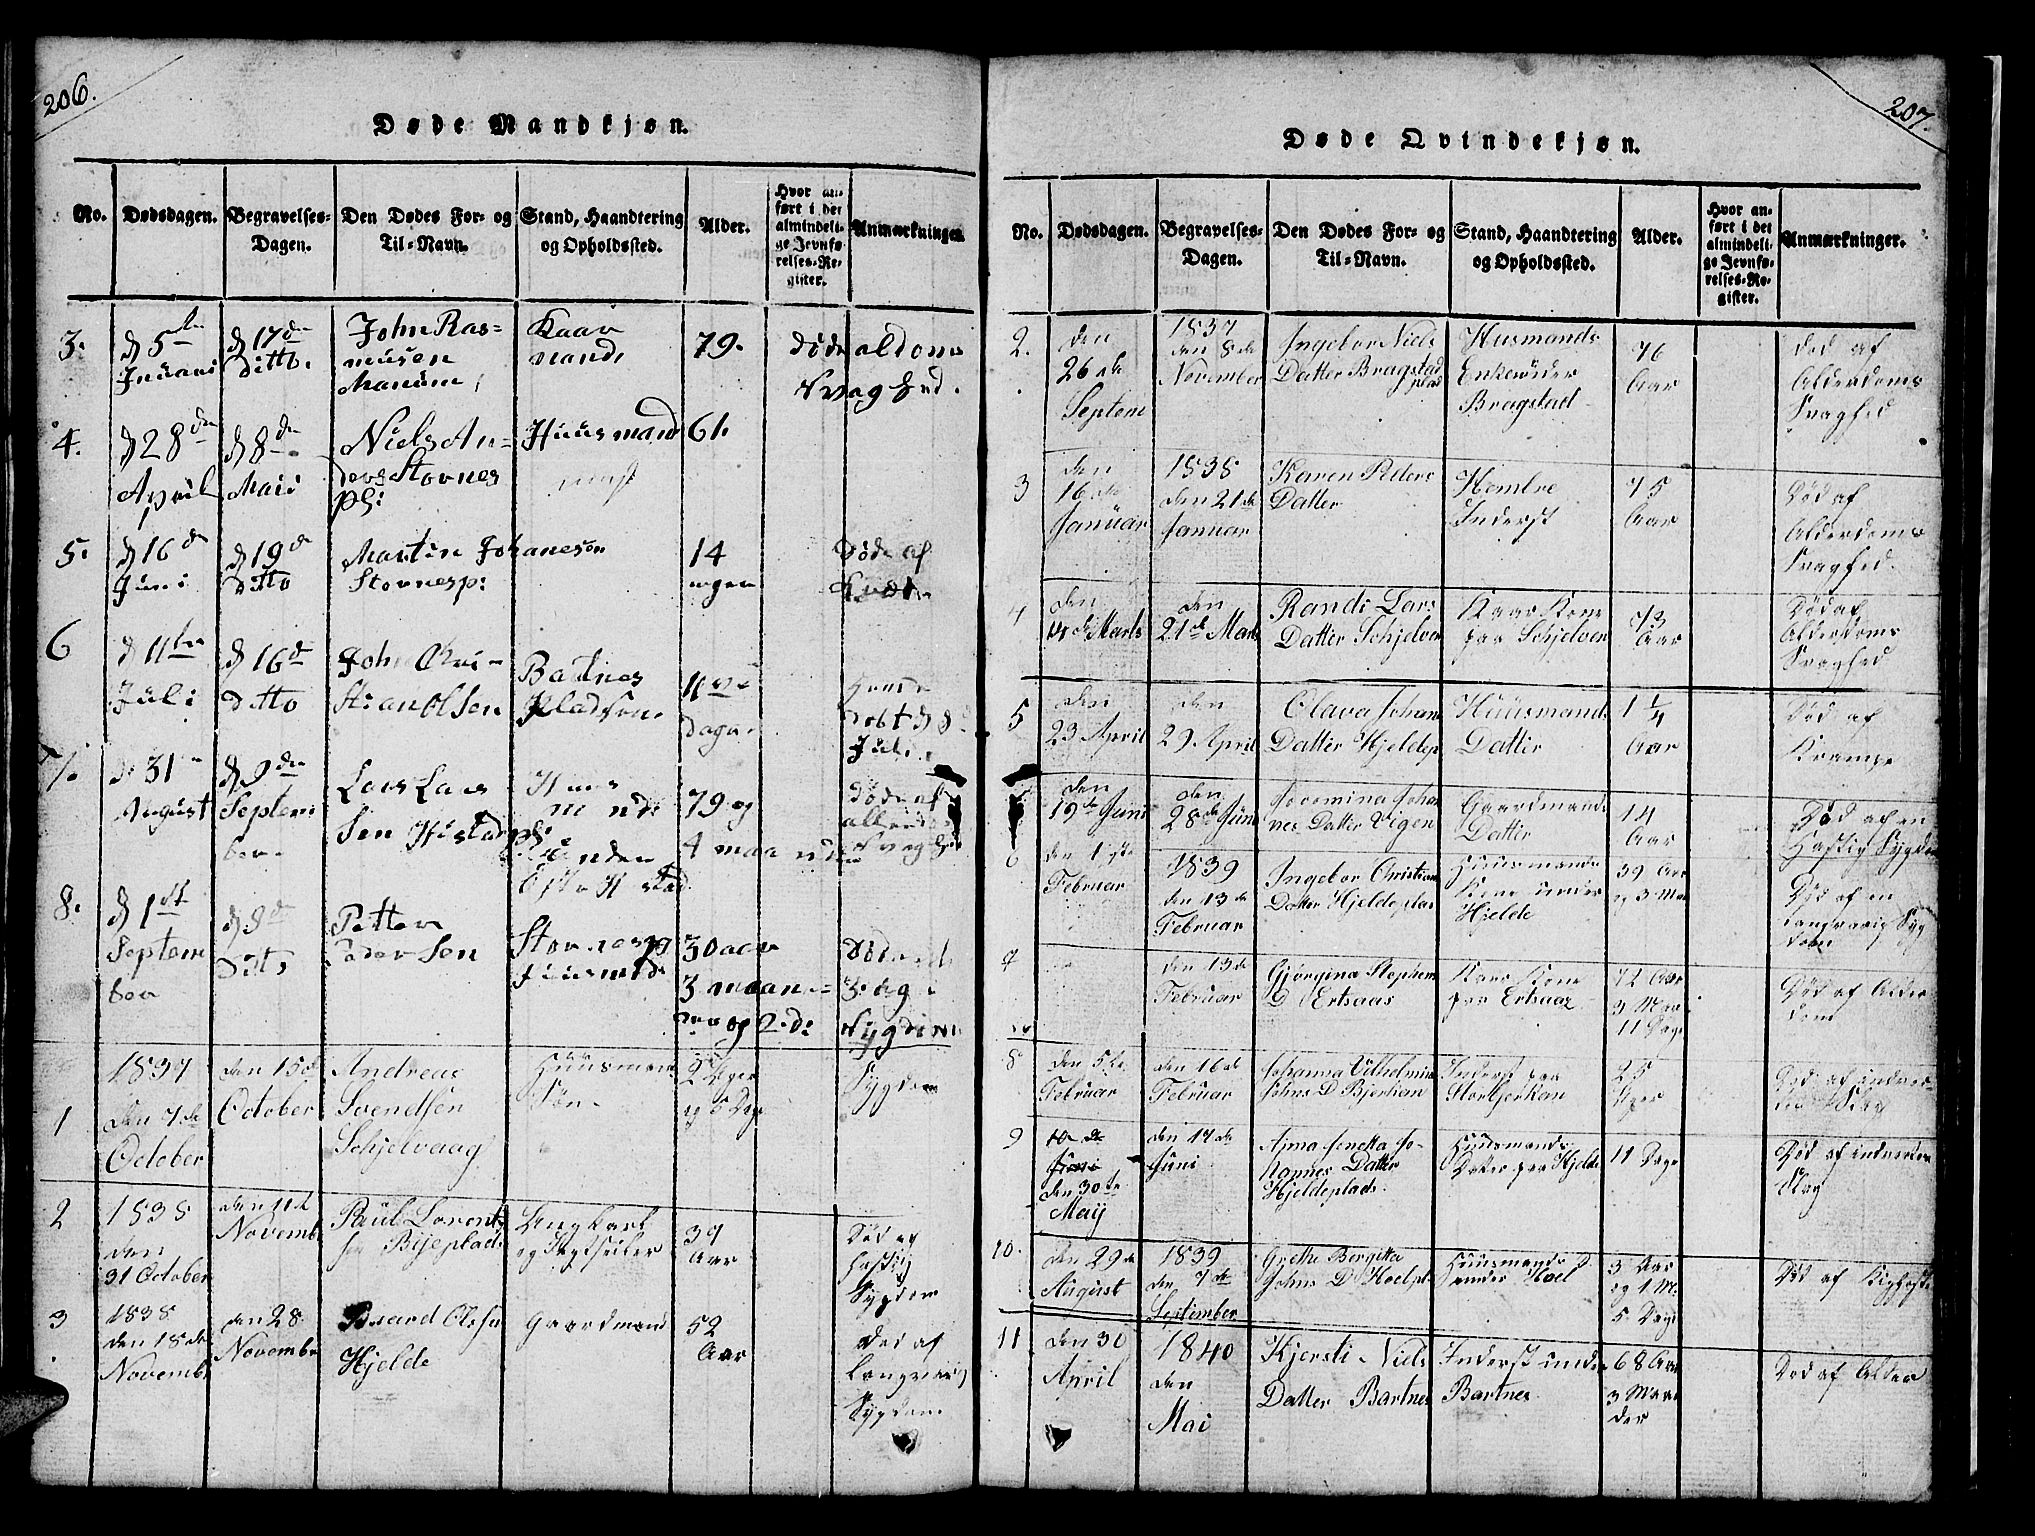 206.
Døde Mandkjøn.
No. Dødsdagen. Begravelses-Dagen. Den Dødes For- og Til-Navn. Stand, Haandtering og Opholdssted. Alder. Hvor anført i det almindelige Jevnførelses-Register. Anmærkninger.
3. d 5te Januari d 17de Ditto. John Rasmusen Manum, Kaarmand, 79. Døde aldoms Svaghed.
4. d 28de April d 8de Maii Niels Anders Stovnes pl: Huusmand 61.
5. d 16d Juni d 19d ditto Martin Johanesen Stovnesp: 14 ugen Døde af
6 d 11te Juli d 16d ditto John Kristian Olsen Bartnes Pladsen 11 dage døbt d 8d Juli.
7. d 31 August d 9de September Lars Larssen Hustad pl: Huusmand: 79 og 4 maander Døde af Svaghed
8. d 1st September d 8d Dito Petter Pedersen Stovnespl Huusmand 30 aar 3 maander og 2 d: Døde 3 dag Sygdom
1 1837 Den 7de October den 15d October Andreas Svendsen Schjelvaag Huusmands Søn 2 Uger og 6 Dage Sygdom
2 1838 den 31 October den 11t Novemb Paul Lorents sen Bijeplads 39 Aar Død af hastig Sygdom
3 1838 den 18de Novemb den 28 Novembr Baard Olsen Hjelde Gaardmand 52 Aar Død af Langvarig Sygdom
207.
Døde Qvindekjøn.
No. Dødsdagen. Begravelses-Dagen. Den Dødes For- og Til-Navn. Stand, Haandtering og Opholdssted. Alder. Hvor anført i det almindelige Jevnførelses-Register. Anmærkninger.
2. den 26de Septem 1837 den 8de November Ingebor Niels Datter Bragstad plad Husmands Enke under Bragstad 76 Aar død af Alderdoms Svaghed
3 den 16de Januar 1838 den 21de Januar Karen Peders Datter Hembre Inderst 75 Aar Død af Alderdoms Svaghed.
4 den Marts den 21de Mart Randi Lars Datter Schjelver Kaar Kone paa Schjelver 73 Aar Død af Alderdoms Svaghed
5 den 23 April den 29 April Olava Johan Datter Hjeldep Huusmands Datter 1 1/4 Aar Død af Krampe
den 19de Juni den 28de Juni Joromina Johannes Datter Vigen Gaardmands Datter 14 Aar Død af en Hastig Sygdom
6 den 1ste Februar 1839 den 13de Februar Ingebor Christian Datter Hjeldeplas Huusmands Kone under Hjelde 39 Aar og 3 Maa Død af en Langvarig Sygdom
7 den 13de Februar Gjørgina Stephen D Ertsaas Kaar Kone paa Ertsaas 72 Aar 3 Maa 11 Dage Død af Alderdom
8 den 5te Februar den 16de Februar Johanna Vilhelmina Johns D Bjerkan Inderst paa Storbjerkan 25 Uger Død af indvortes Slag
9 10de Juni den 30te Maij den 17de Juni Anna Jonetta Johannes Datter Hjeldeplads Huusmands Datter paa Hjelde 11 Dage Død af indvortes Slag
10. den 29de August 1839 den 7de September Grethe Bergitta Johns D Hoelpl Huusmands D under Hoel 3 Aar og 1 M. 5 Dage Død af Kighoste
11 den 30 April 1840 den Mai Kjersti Niels Datter Bartnes Inderst under Bartnes 68 Aar 3 Maander Død af Alder